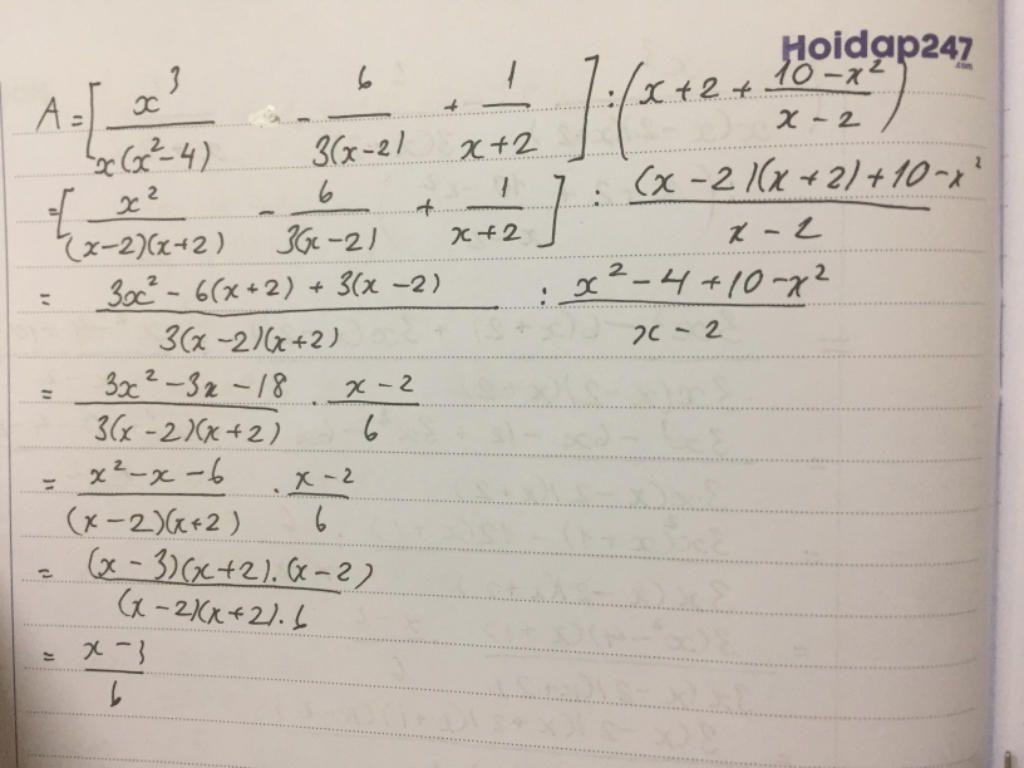 Hoidap247.com
A = [x³/(x(x²-4)) - 6/(3(x-2)) + 1/(x+2)] : (x+2+(10-x²)/(x-2))
= [x²/((x-2)(x+2)) - 6/(3(x-2)) + 1/(x+2)] : ((x-2)(x+2)+10-x²)/(x-2)
= (3x²-6(x+2)+3(x-2))/(3(x-2)(x+2)) : (x²-4+10-x²)/(x-2)
= (3x²-3x-18)/(3(x-2)(x+2)) . (x-2)/6
= (x²-x-6)/((x-2)(x+2)) . (x-2)/6
= ((x-3)(x+2).(x-2))/((x-2)(x+2).6)
= (x-3)/6